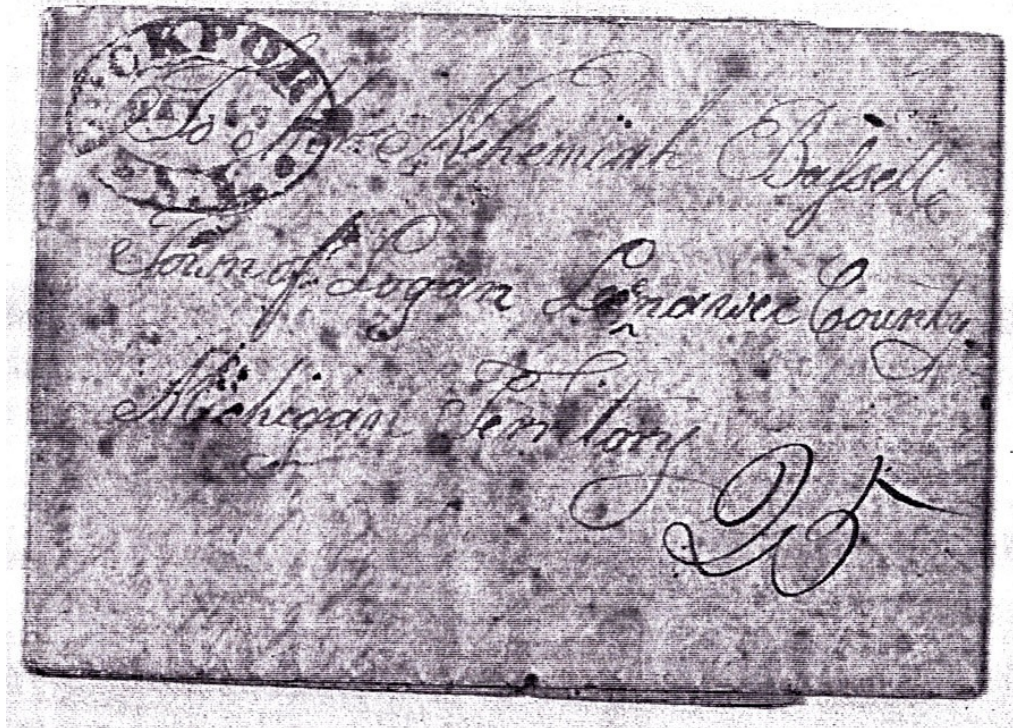 LOCKPORT
N.Y.
To Mr. Nehemiah Bassett
Town of Logan Lenawee County
Michigan Territory
25